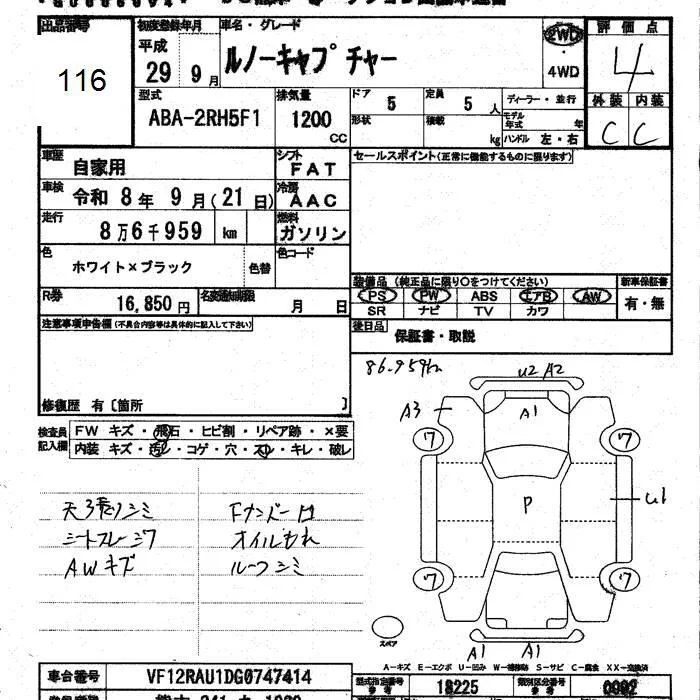 出品番号
116
初度登録年月
平成
29 9月
車名・グレード
ルノーキャプチャー
2WD
・4WD
評価点
4
外装 内装
C C
型式
ABA-2RH5F1
排気量
1200
CC
ドア 5
形状
定員 5人
積載 kg
ディーラー・並行
モデル年式 年
ハンドル 左・右
車歴
自家用
シフト
FAT
セールスポイント(正常に機能するものに限ります)
車検
令和 8年 9月(21日)
冷房
AAC
走行
8万6千959 km
燃料
ガソリン
色
ホワイト×ブラック
色替
色コード
装備品 (純正品に限り○をつけてください)
新車保証書
PS PW ABS エアB AW
SR ナビ TV カワ
有・無
R券
16,850円
名変通知期限
月 日
後日品
保証書・取説
注意事項申告欄(不具合内容等は具体的に記入して下さい)
修復歴 有〔箇所 〕
検査員記入欄
FW キズ・飛石・ヒビ割・リペア跡・×要
内装 キズ・汚レ・コゲ・穴・スレ・キレ・破レ
86.959km
U2 A2
A3
A1
ワ ワ
P
U1
ワ ワ
A1 A1
スペア
シートフレーシワ
AWキズ
オイルもれ
ルーフシミ
A-キズ E-エクボ U-凹み W-補修跡 S-サビ C-腐食 XX-交換済
車台番号
VF12RAU1DG0747414
型式指定番号
参考
18225
類別区分番号
参考
0002